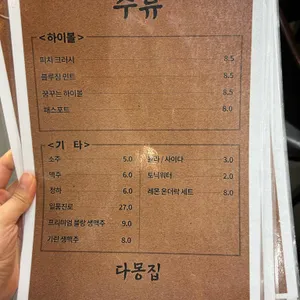 주류
<하이볼>
피치 크러시 8.5
블루밍 민트 8.5
꿈꾸는 하이볼 8.5
패스포트 8.0
<기 타>
소주 5.0
맥주 6.0
청하 6.0
일품진로 27.0
프리미엄 몰팅 생맥주 9.0
기린 생맥주 8.0
콜라 / 사이다 3.0
토닉워터 2.0
레몬 온더락 세트 8.0
다몽집